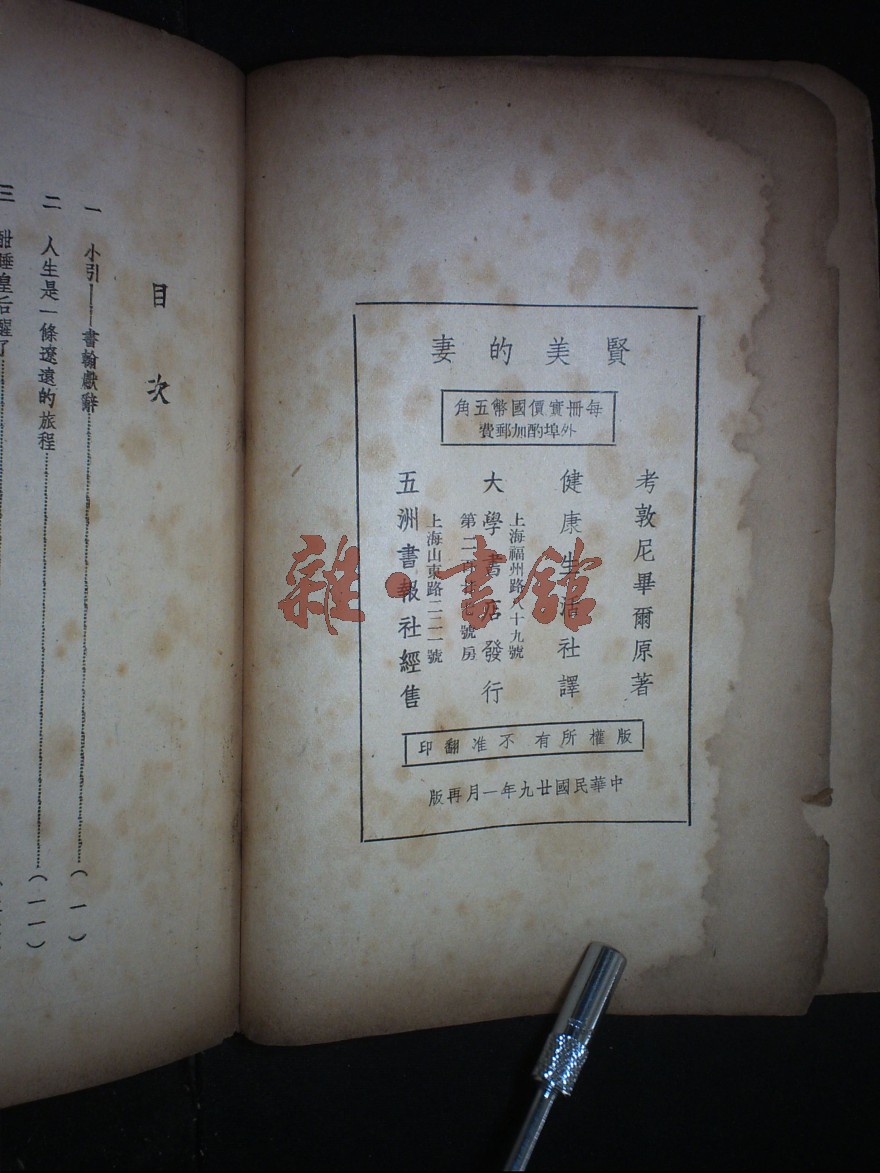 賢美的妻
每冊實價國幣五角
外埠酌加郵費
考敦尼畢爾原著
健康生活社譯
上海福州路八十九號
大學書店發行
第二 號房
上海山東路二二一號
五洲書報社經售
版權所有 不准翻印
中華民國廿九年一月再版
目次
一 小引——書翰獻辭……(一)
二 人生是一條遼遠的旅程……(一一)
三 酣睡皇后醒了……
雜·書館